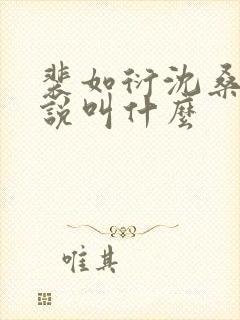 裴如衍沈桑
說叫什麼
唯其